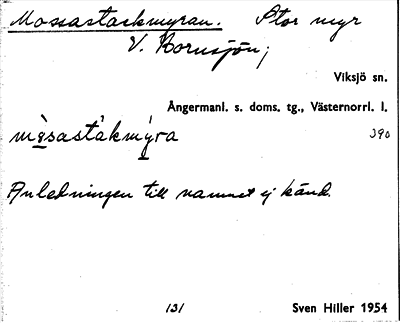 Mossastackmyran. Stor myr
V. Bornsjön;
Viksjö sn.
Ångermanl. s. doms. tg., Västernorrl. l.
390
Anledningen till namnet ej känd.
131
Sven Hiller 1954